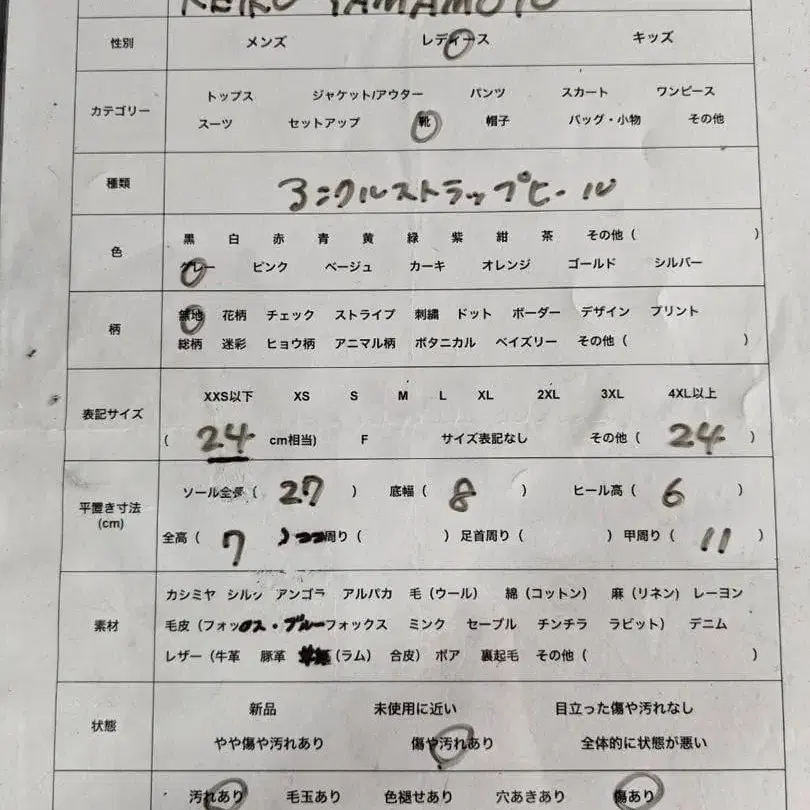 KEIKO YAMAMOTO
性別 メンズ レディース キッズ
カテゴリー トップス ジャケット/アウター パンツ スカート ワンピース
スーツ セットアップ 靴 帽子 バッグ・小物 その他
種類 アンクルストラップヒール
色 黒 白 赤 青 黄 緑 紫 紺 茶 その他 ( )
グレー ピンク ベージュ カーキ オレンジ ゴールド シルバー
柄 無地 花柄 チェック ストライプ 刺繍 ドット ボーダー デザイン プリント
総柄 迷彩 ヒョウ柄 アニマル柄 ボタニカル ペイズリー その他 ( )
表記サイズ XXS以下 XS S M L XL 2XL 3XL 4XL以上
( 24 cm相当) F サイズ表記なし その他 ( 24 )
平置き寸法 (cm) ソール全長 ( 27 ) 底幅 ( 8 ) ヒール高 ( 6 )
全高 ( 7 ) 周り ( ) 足首周り ( ) 甲周り ( 11 )
素材 カシミヤ シルク アンゴラ アルパカ 毛 (ウール) 綿 (コットン) 麻 (リネン) レーヨン
毛皮 (フォックス・ブルーフォックス ミンク セーブル チンチラ ラビット) デニム
レザー (牛革 豚革 (ラム) 合皮) ボア 裏起毛 その他 ( )
状態 新品 未使用に近い 目立った傷や汚れなし
やや傷や汚れあり 傷や汚れあり 全体的に状態が悪い
汚れあり 毛玉あり 色褪せあり 穴あきあり 傷あり